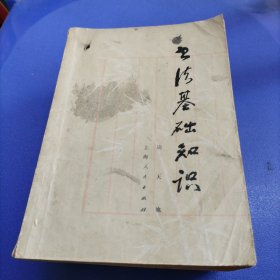 书法基础知识
周天地
上海人民出版社